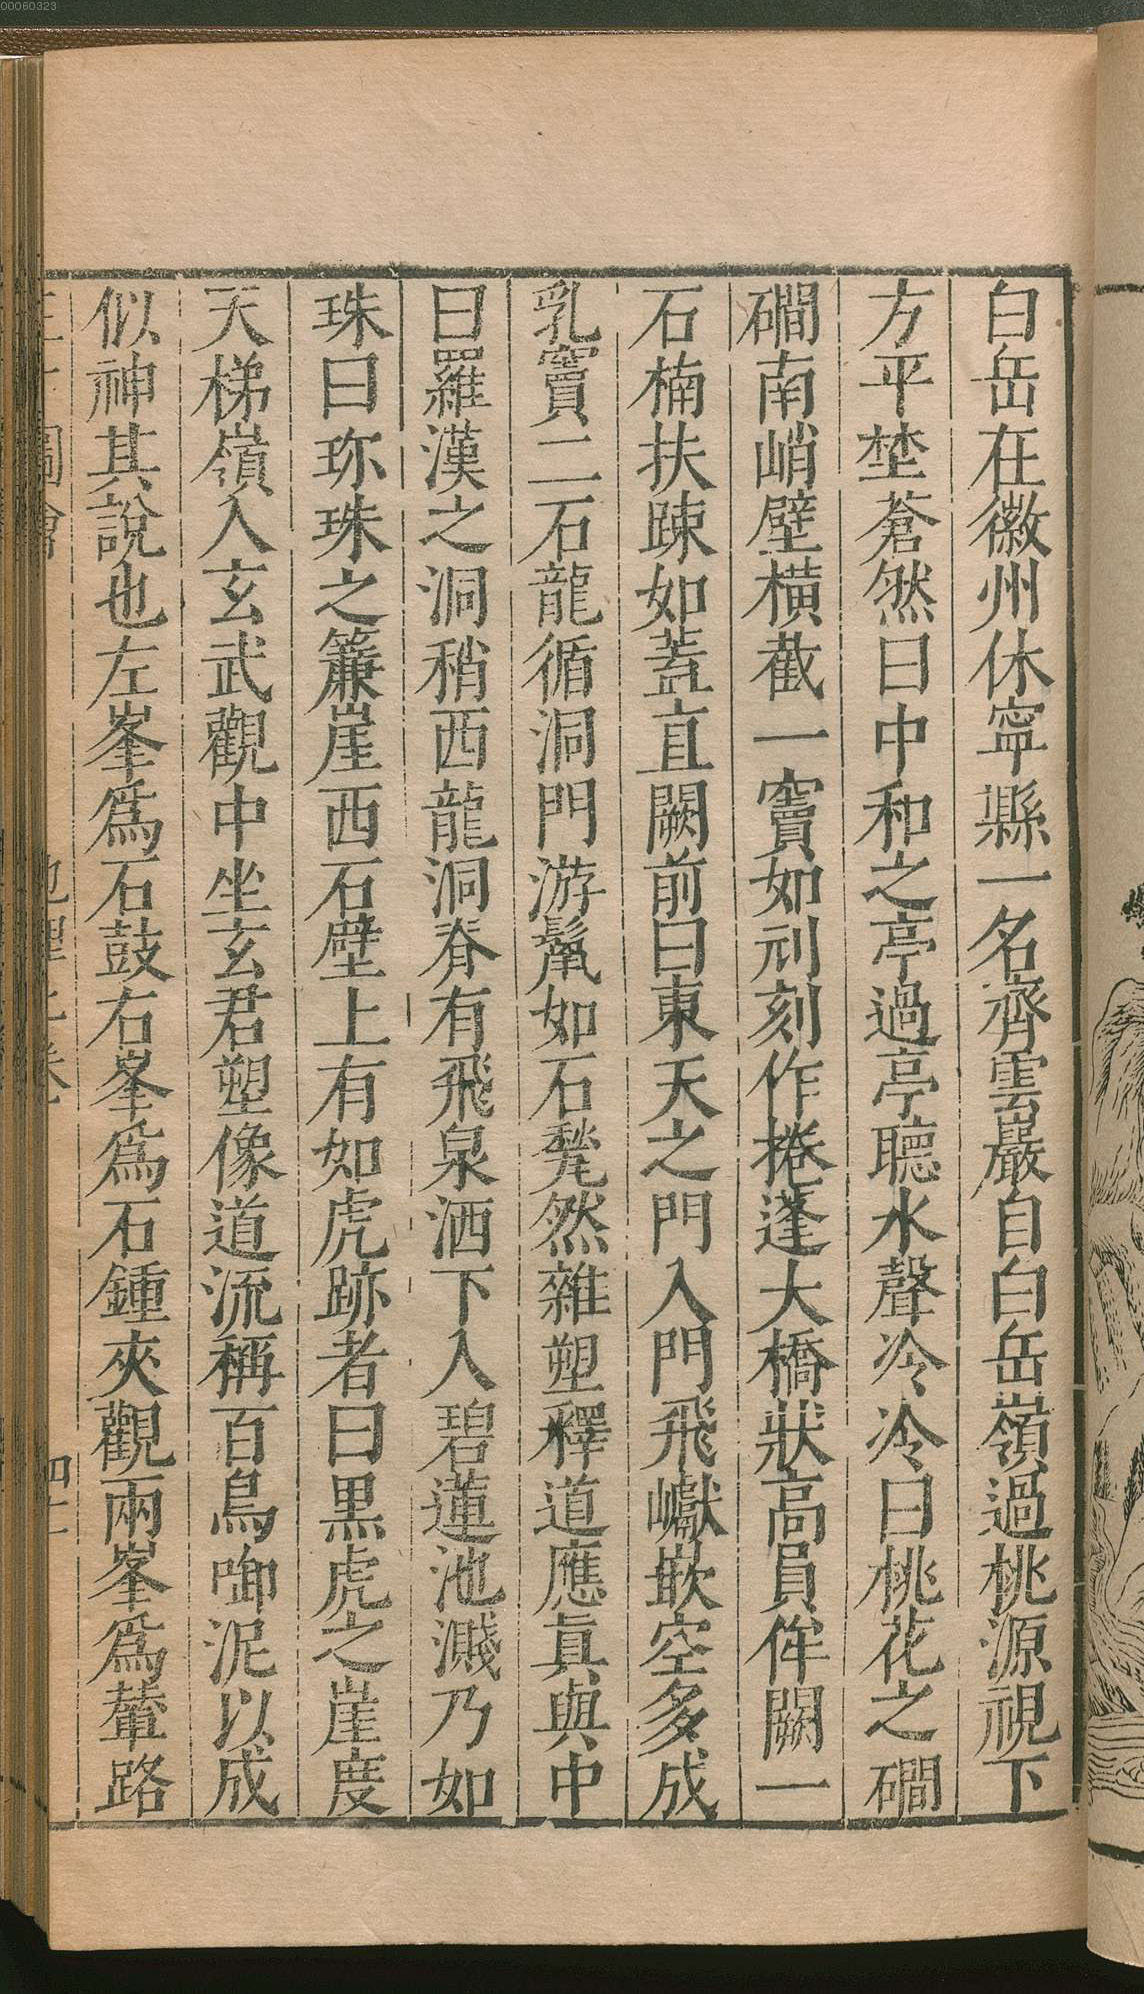 00060323
白岳在徽州休寧縣一名齊雲巖自白岳嶺過桃源視下
方平埜蒼然曰中和之亭過亭聽水聲冷冷曰桃花之磵
磵南峭壁橫截一竇如刓刻作捲蓬大橋狀高員侔闕一
石楠扶踈如蓋直闕前曰東天之門入門飛巘嵌空多成
乳竇二石龍循洞門游鬣如石凳然雜塑釋道應眞與中
曰羅漢之洞稍西龍洞脊有飛泉洒下入碧蓮池濺乃如
珠曰珎珠之簾崖西石壁上有如虎跡者曰黒虎之崖度
天梯嶺入玄武觀中坐玄君塑像道流稱百鳥啣泥以成
似神其說也左峯爲石鼓右峯爲石鍾夾觀兩峯爲輦路